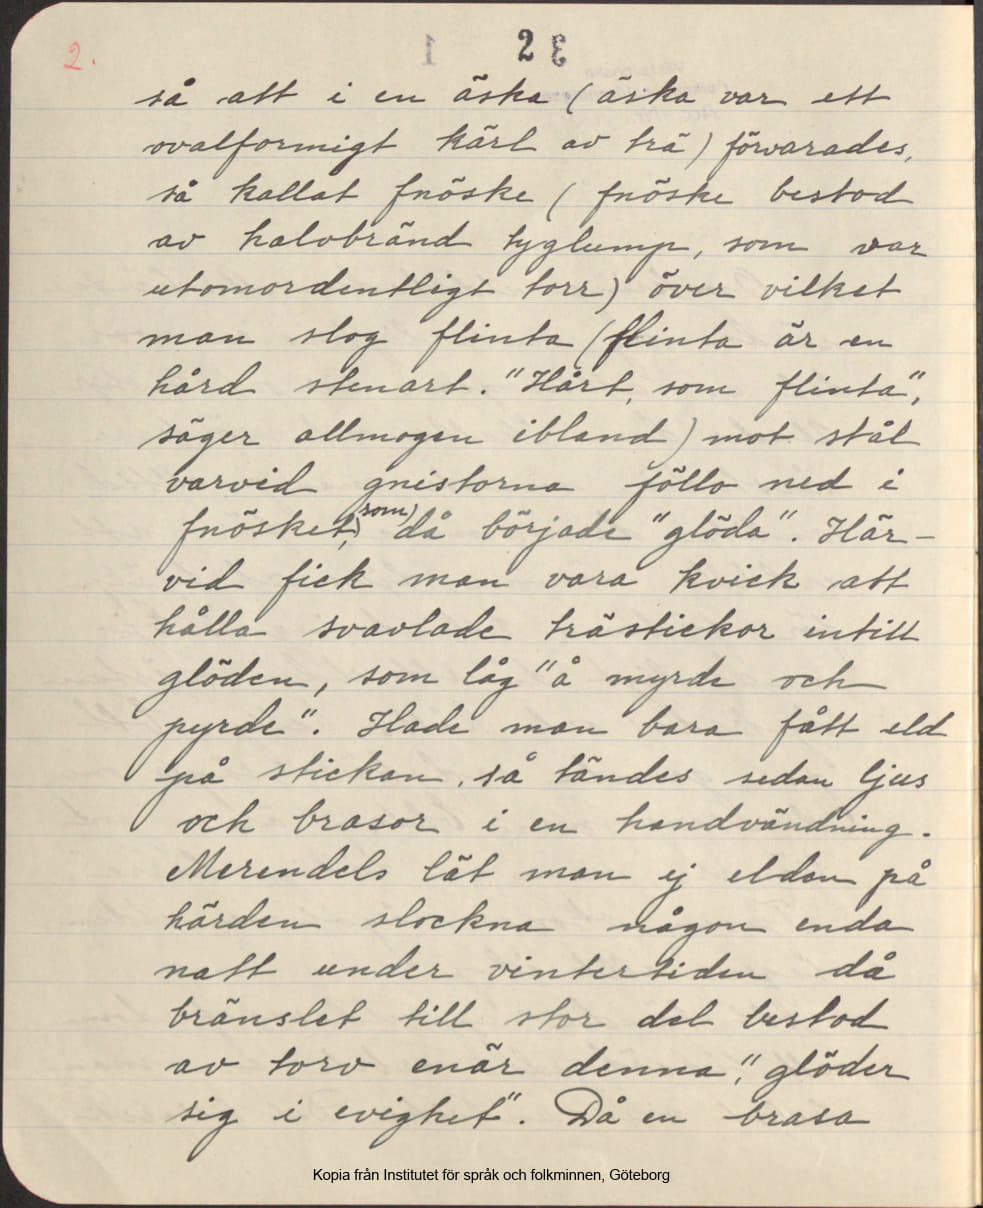 2.
23
så att i en äska (äska var ett
ovalformigt kärl av trä) förvarades,
så kallat fnöske (fnöske bestod
av halvbränd tyglump, som var
utomordentligt torr) över vilket
man slog flinta (flinta är en
hård stenart. "Hårt, som flinta",
säger allmogen ibland) mot stål
varvid gnistorna föllo ned i
fnösket, (som) då började "glöda". Här-
vid fick man vara kvick att
hålla svavlade trästickor intill
glöden, som låg "å myrde och
pyrde". Hade man bara fått eld
på stickan, så tändes sedan ljus
och brasor i en handvändning.
Merendels lät man ej elden på
härden slockna någon enda
natt under vintertiden då
bränslet till stor del bestod
av torv enär denna, "glöder
sig i evighet". Då en brasa
Kopia från Institutet för språk och folkminnen, Göteborg